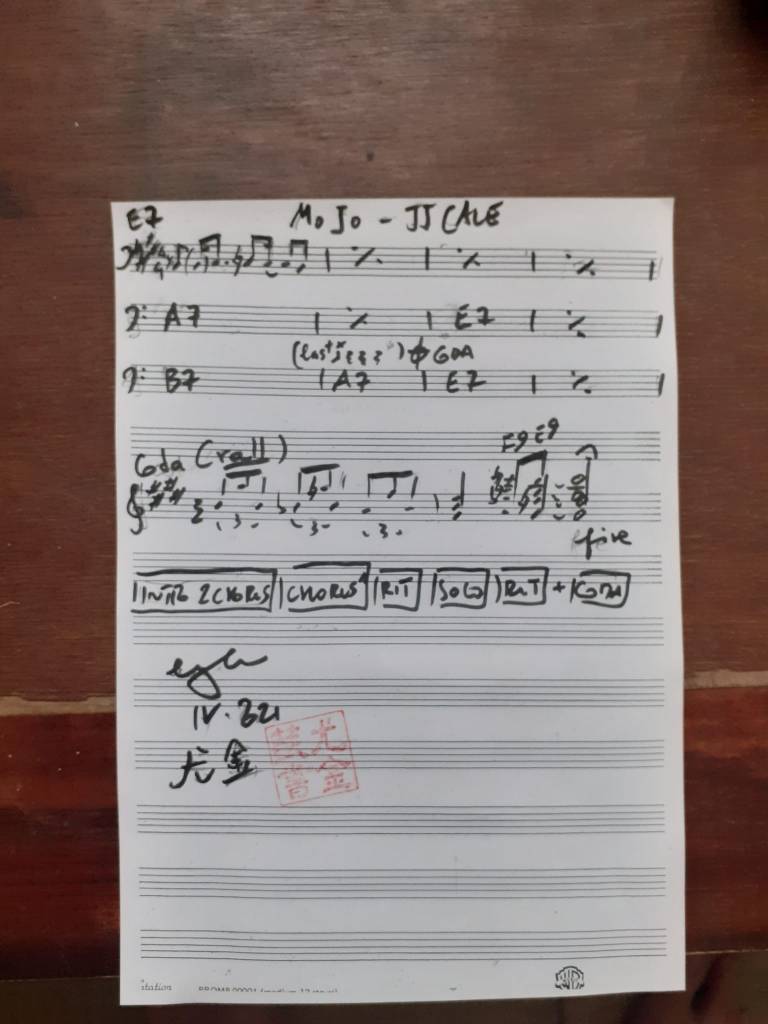 E7 MOJO - JJ CALE
A7 E7
(last x
CODA
B7 A7 E7
F9 E9
Coda (rall)
3 3 3
fine
INTRO 2CHORUS CHORUS RIT SOLO RIT + CODA
IV.321
尤金
尤
金
書
station